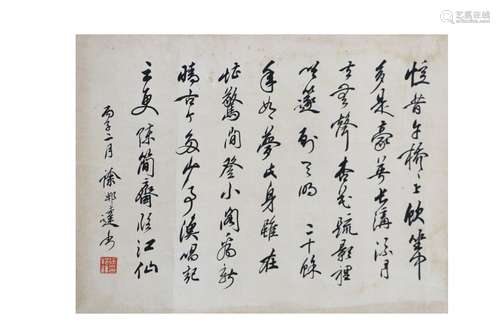 艺狐在线
憶昔午橋橋上飲坐中
多是豪英長溝流月
去無聲杏花疏影裡
吹篴到天明 二十餘
年如夢此身雖在
堪驚閒登小閣看新
晴古今多少事漁唱起
三更 陳簡齋臨江仙
丙子二月 徐邦達書